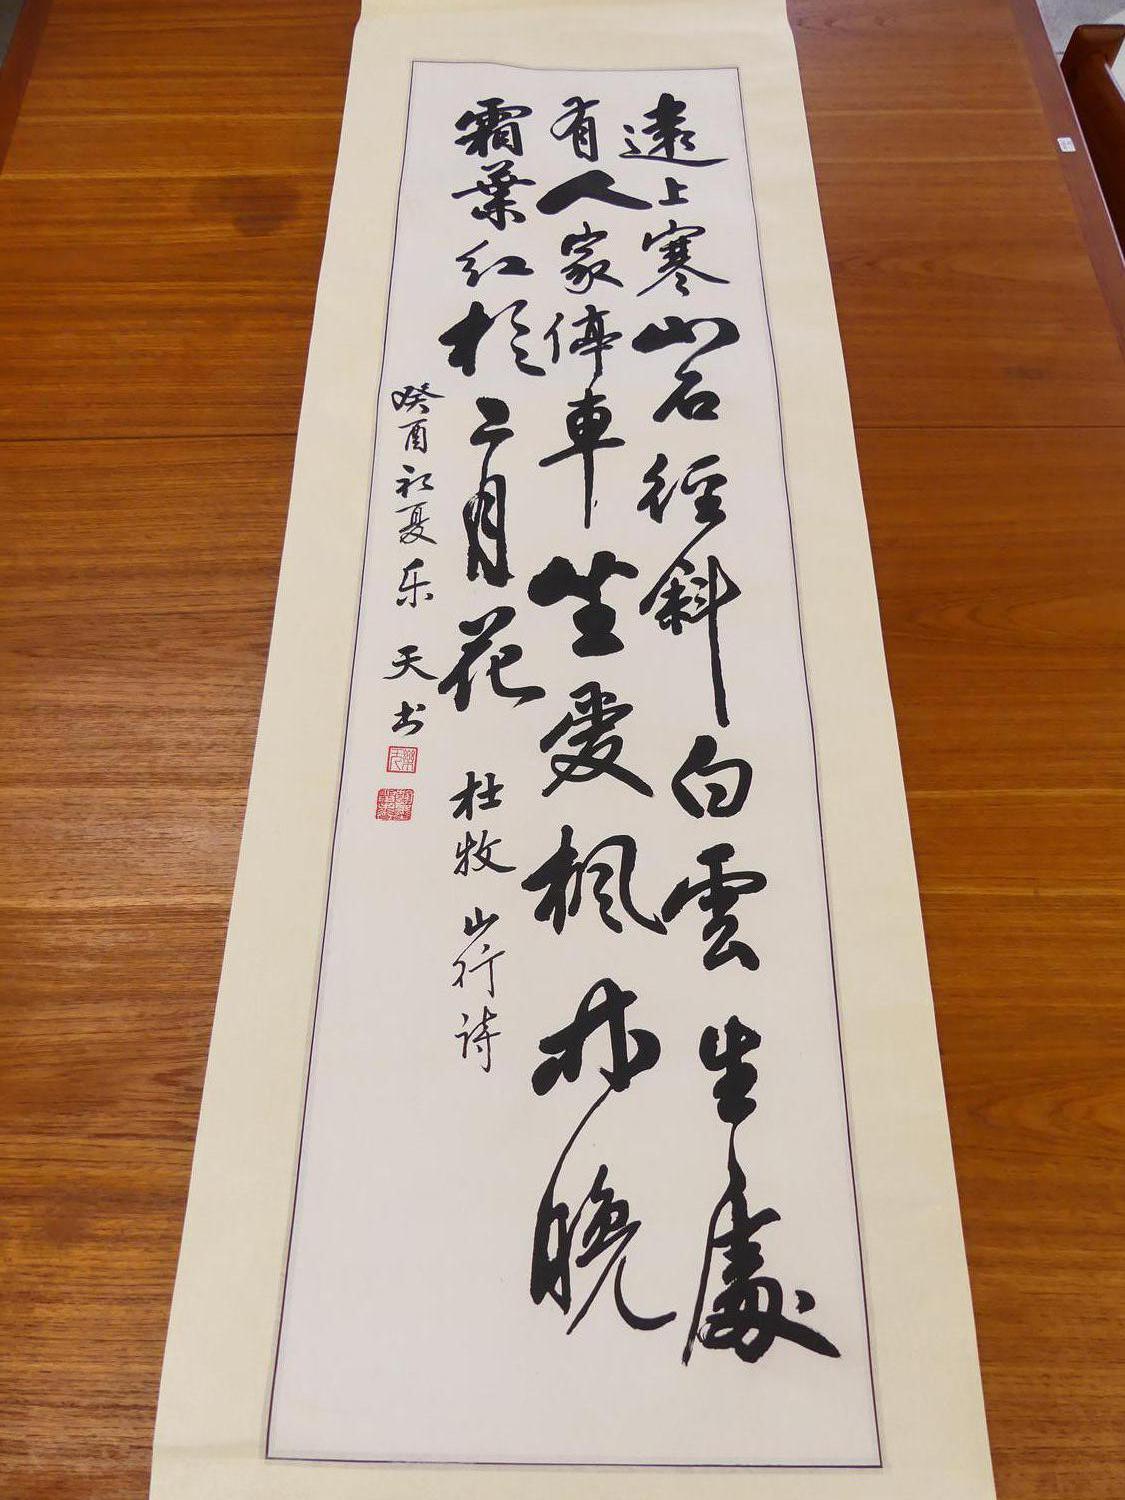 遠上寒山石徑斜白雲生處
有人家停車坐愛楓林晚
霜葉紅於二月花
杜牧山行诗
癸酉初夏乐天书